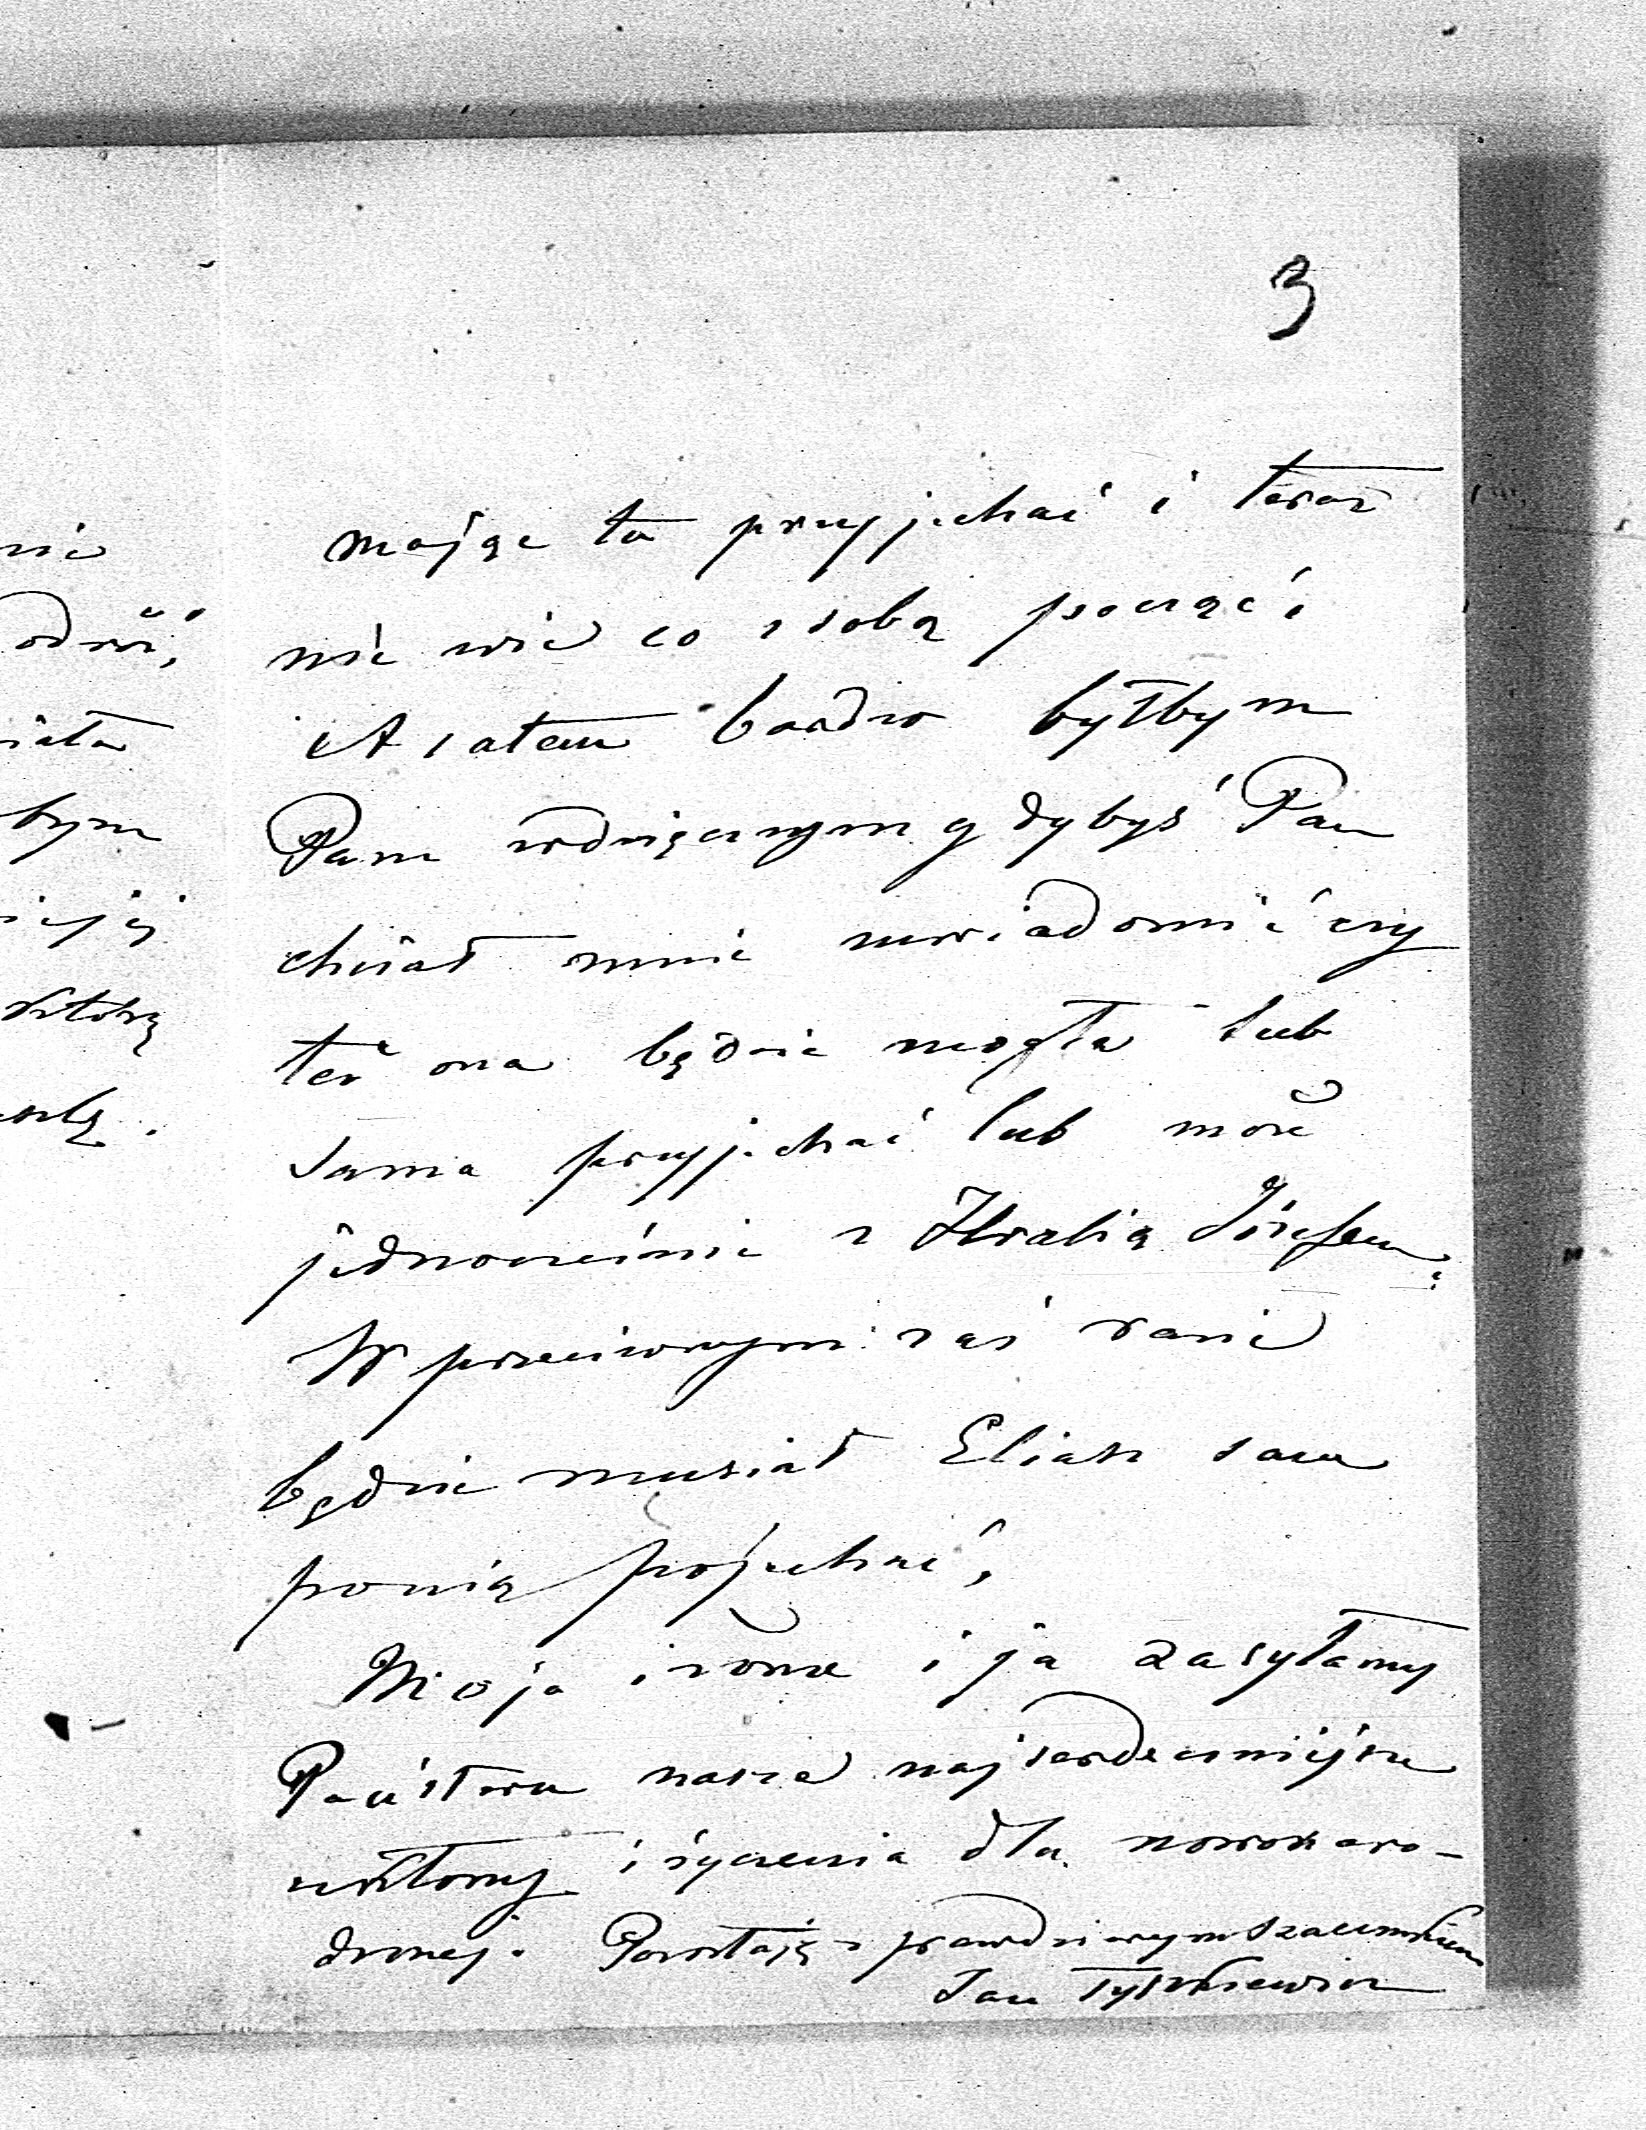 3
mając tu przyjechać i teraz
nie wie co z sobą począć,
A zatem bardzo byłbym
Panu wdzięcznym gdybyś Pan
chciał mnie uwiadomić czy
też ona będzie mogła lub
sama przyjechać lub może
jednocześnie z Hrabią Józefem,
W przeciwnym zaś razie
będzie musiał Eliasz sam
po nią pojechać,
Moja żona i ja zasyłamy
Państwu nasze najserdeczniejsze
ukłony i życzenia dla nowonaro-
dzonej. Pozostaję z prawdziwym szacunkiem
Jan Tyszkiewicz